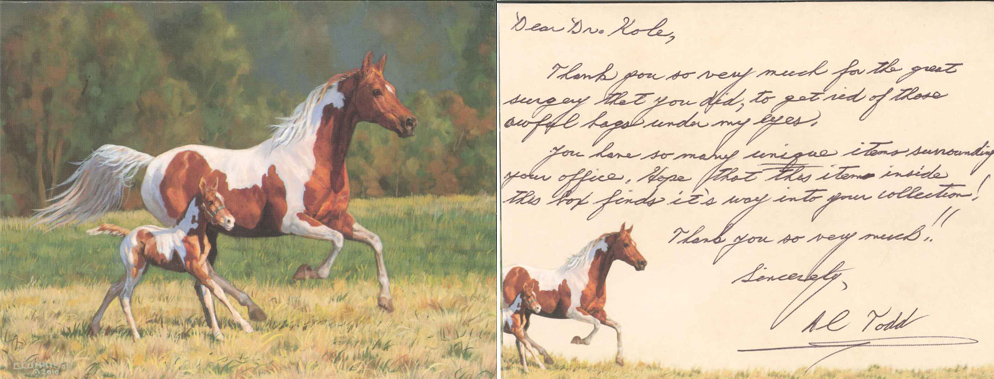 Dear Dr. Kole,
Thank you so very much for the great
surgery that you did, to get rid of those
awful bags under my eyes.
You have so many unique items surrounding
your office. Hope that this item inside
this box finds it's way into your collection!
Thank you so very much!!
Sincerely,
Al Todd